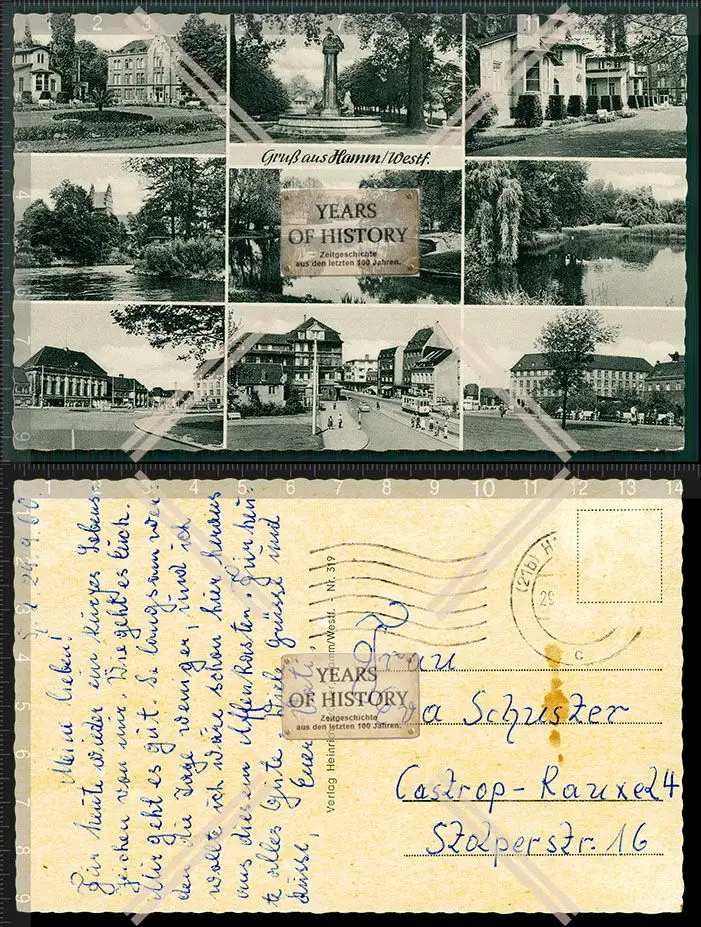 Gruß aus Hamm/Westf.
YEARS
OF HISTORY
Zeitgeschichte
aus den letzten 100 Jahren.
29.9.60
Meine Lieben!
Für heute wieder ein kurzes Lebens-
zeichen von mir. Wie geht es Euch.
Mir geht es gut. So langsam wer-
den die Tage weniger, und ich
wollte ich wäre schon hier heraus
aus diesem Affen Kasten. Für heu-
te alles Gute Viele Grüsse und
Küsse, Euer
Verlag Heinrich Hamm/Westf. - Nr. 319
(21b) H
29
c
YEARS
OF HISTORY
Zeitgeschichte
aus den letzten 100 Jahren.
Frau
Schuster
Castrop-Rauxel 4
Stolperstr. 16